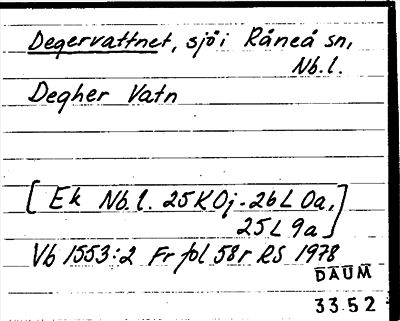 Degervattnet, sjö i Råneå sn,
Nb.l.
Degher Vatn
[Ek Nb.l. 25K0j-26L0a,
25L9a]
Vb 1553:2 Fr fol 58r RS 1978
DAUM
3352